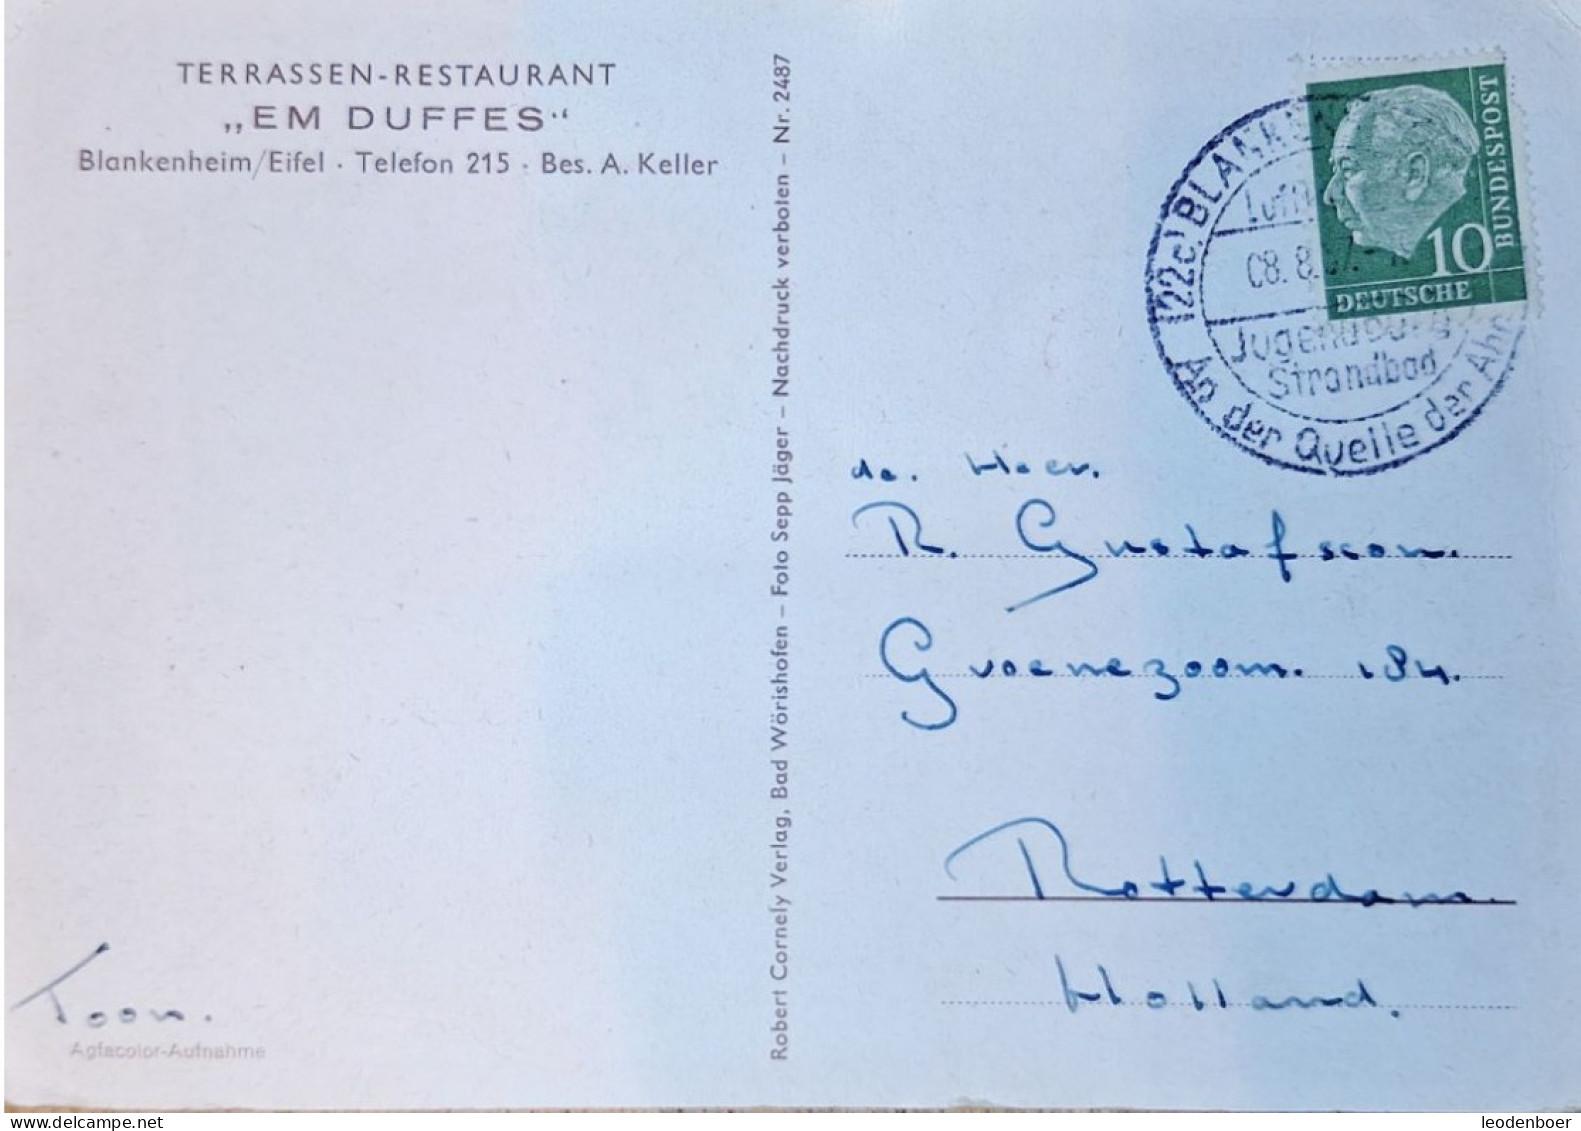 TERRASSEN-RESTAURANT
„EM DUFFES“
Blankenheim/Eifel · Telefon 215 · Bes. A. Keller
Toon.
Agfacolor-Aufnahme
Robert Cornely Verlag, Bad Wörishofen – Foto Sepp Jäger – Nachdruck verboten – Nr. 2487
BUNDESPOST
10
DEUTSCHE
(22c) BLANKEN
08. 8.
Strandbad
An der Quelle der Ahr
de. Heer.
R. Gustafsson.
Groenezoom. 184.
Rotterdam.
Holland.
leodenboer